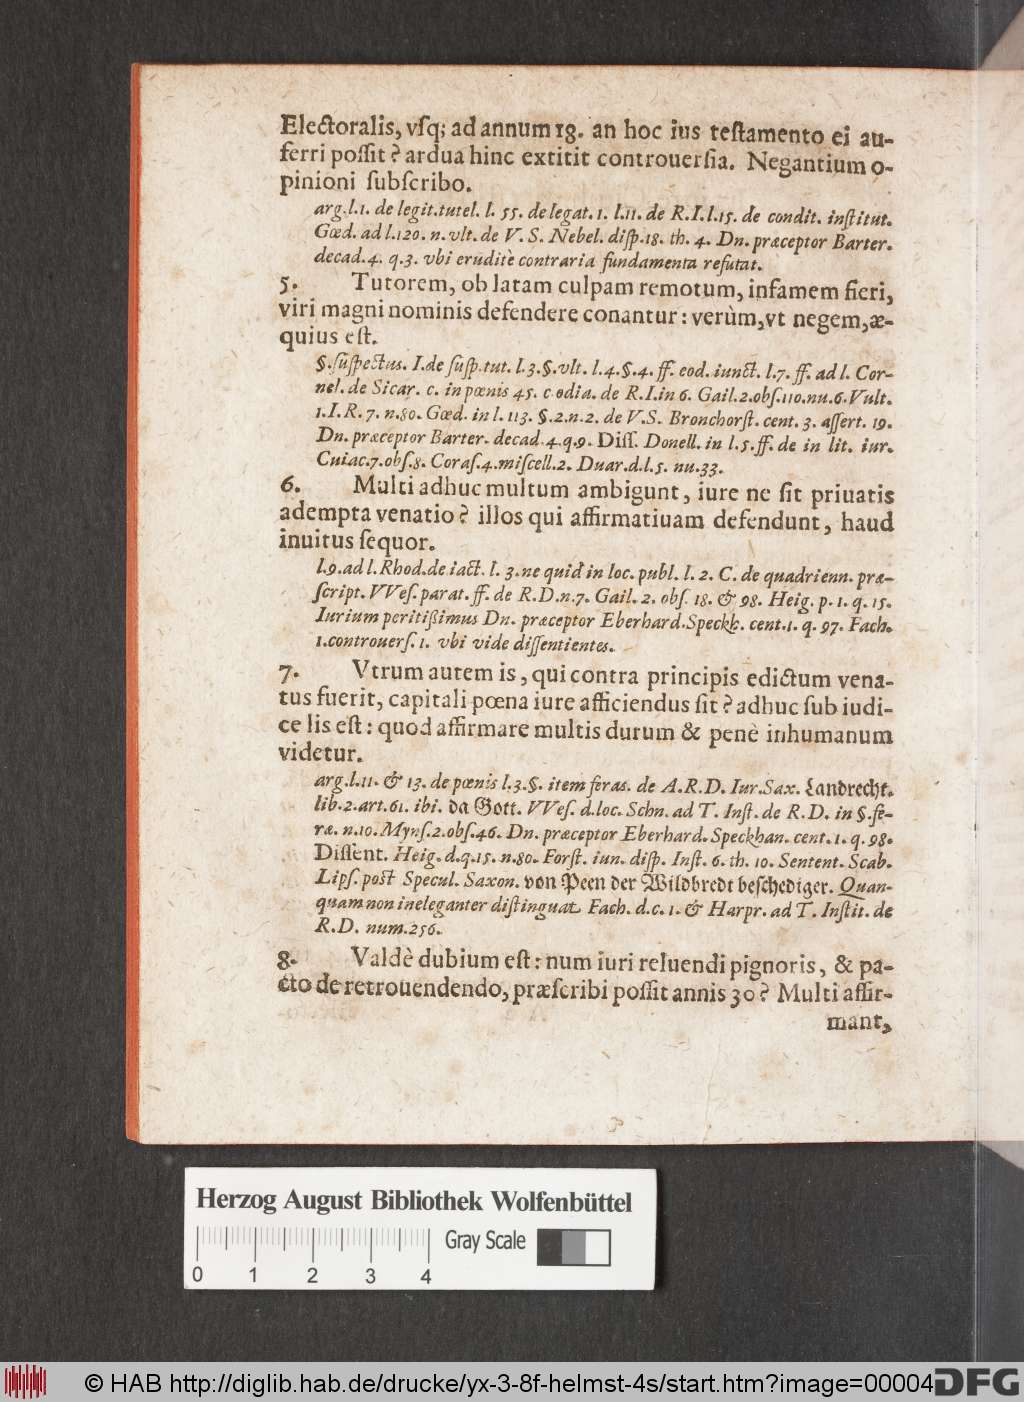 Electoralis, vſq; ad annum 18. an hoc ius teſtamento ei au-
ferri poſſit? ardua hinc extitit controuerſia. Negantium o-
pinioni ſubſcribo.
arg.l.1. de legit.tutel. l. 55. de legat. 1. l.11. de R.I.l.15. de condit. inſtitut.
Gœd. ad l.120. n.vlt. de V. S. Nebel. diſp.18. th. 4. Dn. præceptor Barter.
decad.4. q.3. vbi eruditè contraria fundamenta refutat.
5. Tutorem, ob latam culpam remotum, infamem fieri,
viri magni nominis defendere conantur: verùm, vt negem, æ-
quius eſt.
§.ſuſpectus. I.de ſuſp.tut. l.3.§.vlt. l.4.§.4. ff. eod. iunct. l.7. ff. ad l. Cor-
nel. de Sicar. c. in pœnis 45. c odia. de R.I.in 6. Gail.2.obſ.110.nu.6.Vult.
1.I.R. 7. n.80. Gœd. in l. 113. §.2.n.2. de V.S. Bronchorſt. cent. 3. aſſert. 19.
Dn. præceptor Barter. decad.4.q.9. Diſſ. Donell. in l.5.ff. de in lit. iur.
Cuiac.7.obſ.8. Coraſ.4.miſcell.2. Duar.d.l.5. nu.33.
6. Multi adhuc multum ambigunt, iure ne ſit priuatis
adempta venatio? illos qui affirmatiuam defendunt, haud
inuitus ſequor.
l.9.ad l.Rhod.de iact. l. 3.ne quid in loc. publ. l. 2. C. de quadrienn. præ-
ſcript. VVeſ.parat. ff. de R.D.n.7. Gail. 2. obſ. 18. & 98. Heig. p. 1. q. 15.
Iurium peritißimus Dn. præceptor Eberhard.Speckh. cent.1. q. 97. Fach.
1.controuerſ. 1. vbi vide diſſentientes.
7. Vtrum autem is, qui contra principis edictum vena-
tus fuerit, capitali pœna iure afficiendus ſit? adhuc ſub iudi-
ce lis eſt: quod affirmare multis durum & penè inhumanum
videtur.
arg.l.11. & 13. de pœnis l.3.§. item feras. de A.R.D. Iur.Sax. Landrecht.
lib.2.art.61. ibi. da Gott. VVeſ. d.loc. Schn. ad T. Inſt. de R.D. in §.fe-
ræ. n.10. Mynſ.2.obſ.46. Dn. præceptor Eberhard. Speckhan. cent. 1. q. 98.
Diſſent. Heig. d.q.15. n.80. Forſt. iun. diſp. Inſt. 6. th. 10. Sentent. Scab.
Lipſ. poſt Specul. Saxon. von Peen der Wildbredt beſchediger. Quan-
quam non ineleganter diſtinguat Fach. d.c. 1. & Harpr. ad T. Inſtit. de
R.D. num.256.
8. Valdè dubium eſt: num iuri reluendi pignoris, & pa-
cto de retrouendendo, præſcribi poſſit annis 30? Multi affir-
mant,
Herzog August Bibliothek Wolfenbüttel
Gray Scale
0 1 2 3 4
© HAB http://diglib.hab.de/drucke/yx-3-8f-helmst-4s/start.htm?image=00004
DFG